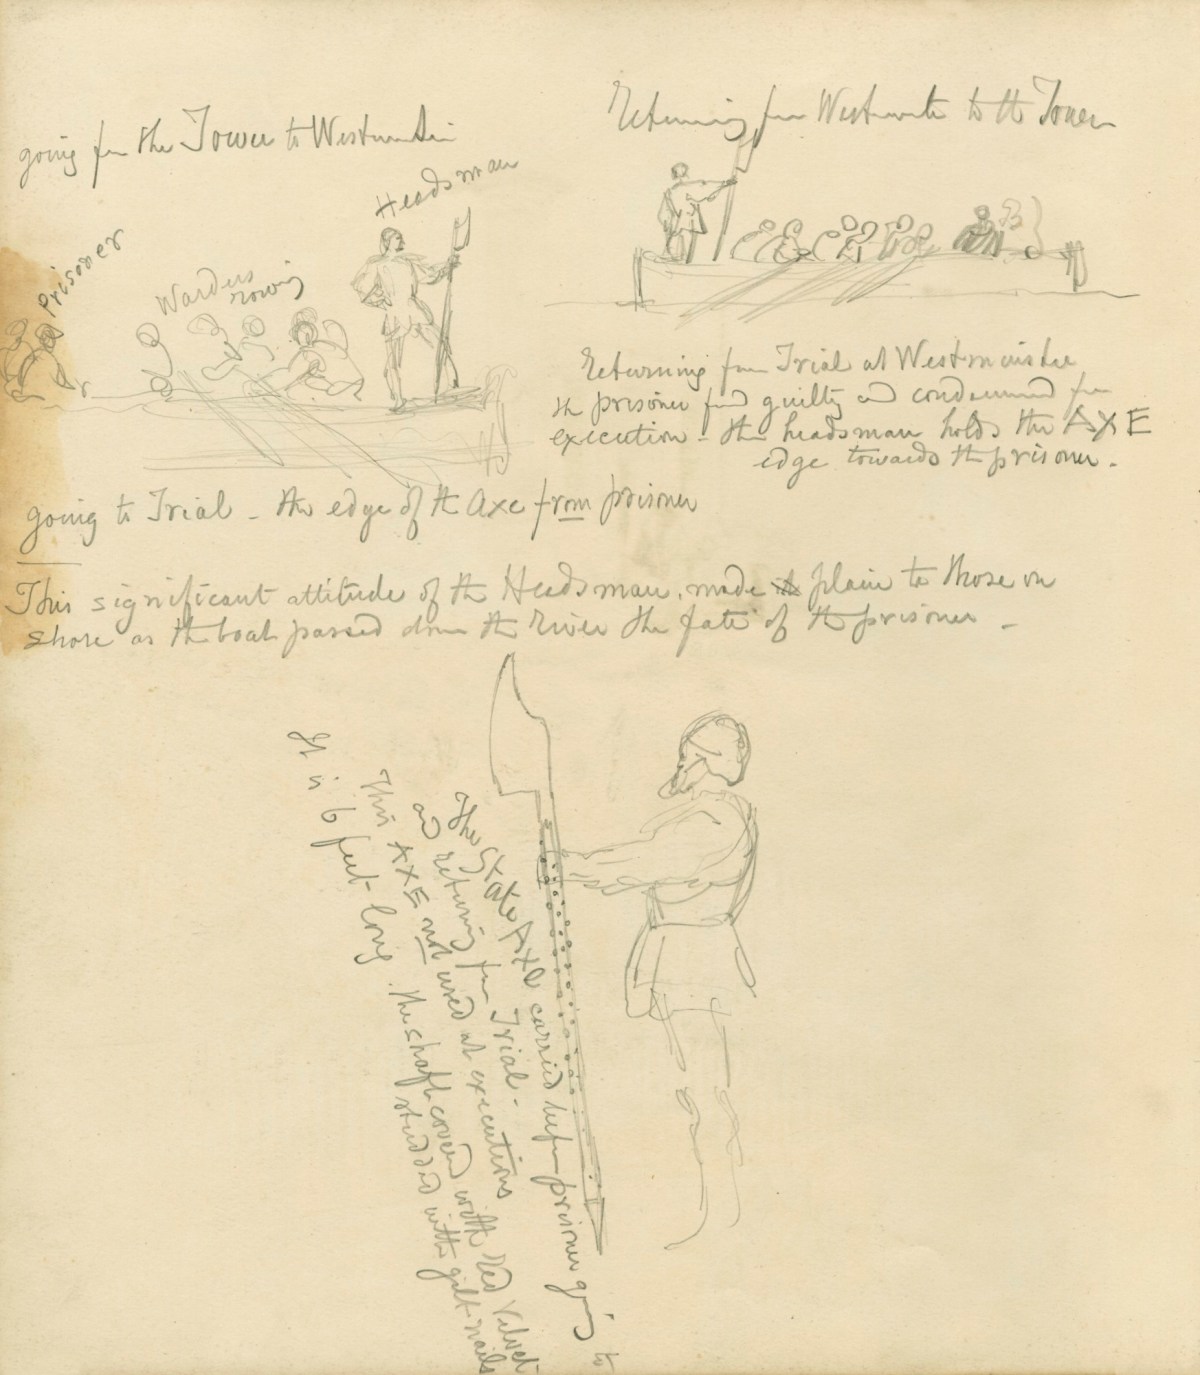 going fm the Tower to Westminster
Headsman
Prisoner
Warders
rowing
Returning fm Westminster to the Tower
Returning from Trial at Westminster
the prisoner fnd guilty and condemned for
execution - the headsman holds the AXE
edge towards the prisoner.
going to Trial - the edge of the Axe from prisoner
This significant attitude of the Headsman, made plain to those on
shore as the boat passed down the River the fate of the prisoner -
The State Axe carried before prisoner going to
and returning fm Trial -
This AXE not used at executions
It is 6 feet long. The shaft covered with Red Velvet
studded with gilt nails